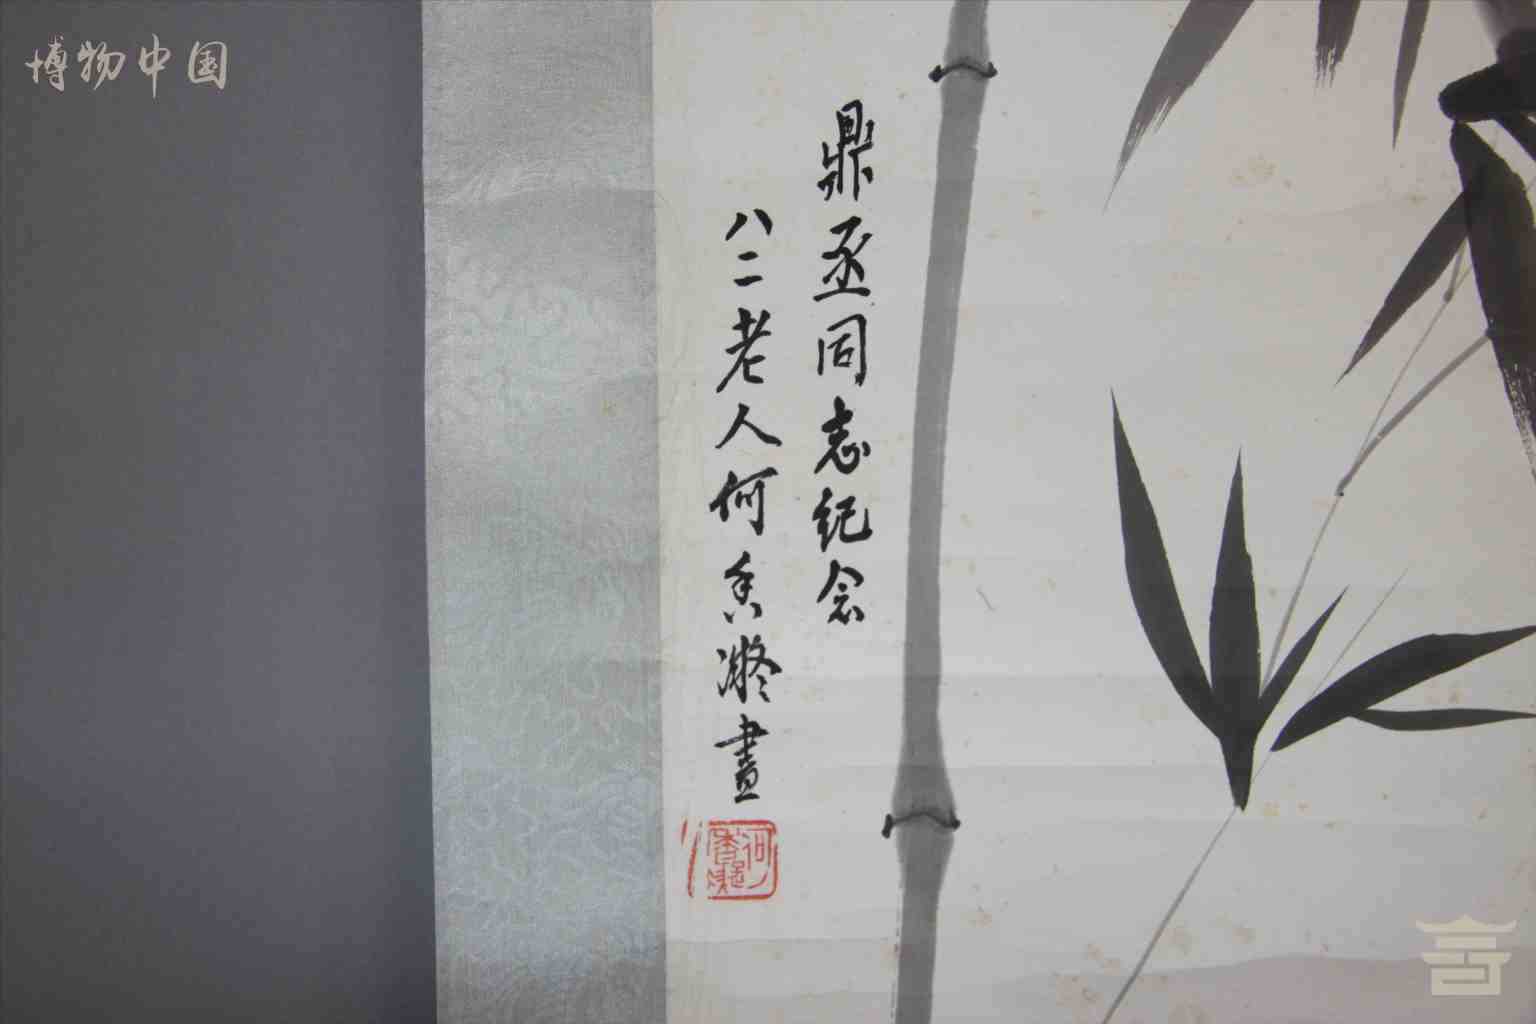 博物中国
鼎丞同志纪念
八二老人何香凝畫
何香凝